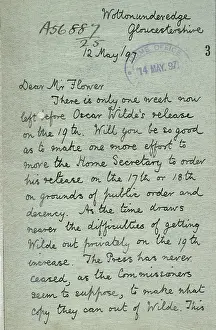 Wottonunderedge
A56887/25
Gloucestershire
12 May/97
14 MAY. 97
3
Dear Mr Flower
There is only one week now
left before Oscar Wilde's release
on the 19th. Will you be so good
as to make one more effort to
move the Home Secretary to order
his release on the 17th or 18th
on grounds of public order and
decency. As the time draws
nearer the difficulties of getting
Wilde out privately on the 19th
increase. The Press has never
ceased, as the Commissioners
seem to suppose, to make what
copy they can out of Wilde. This